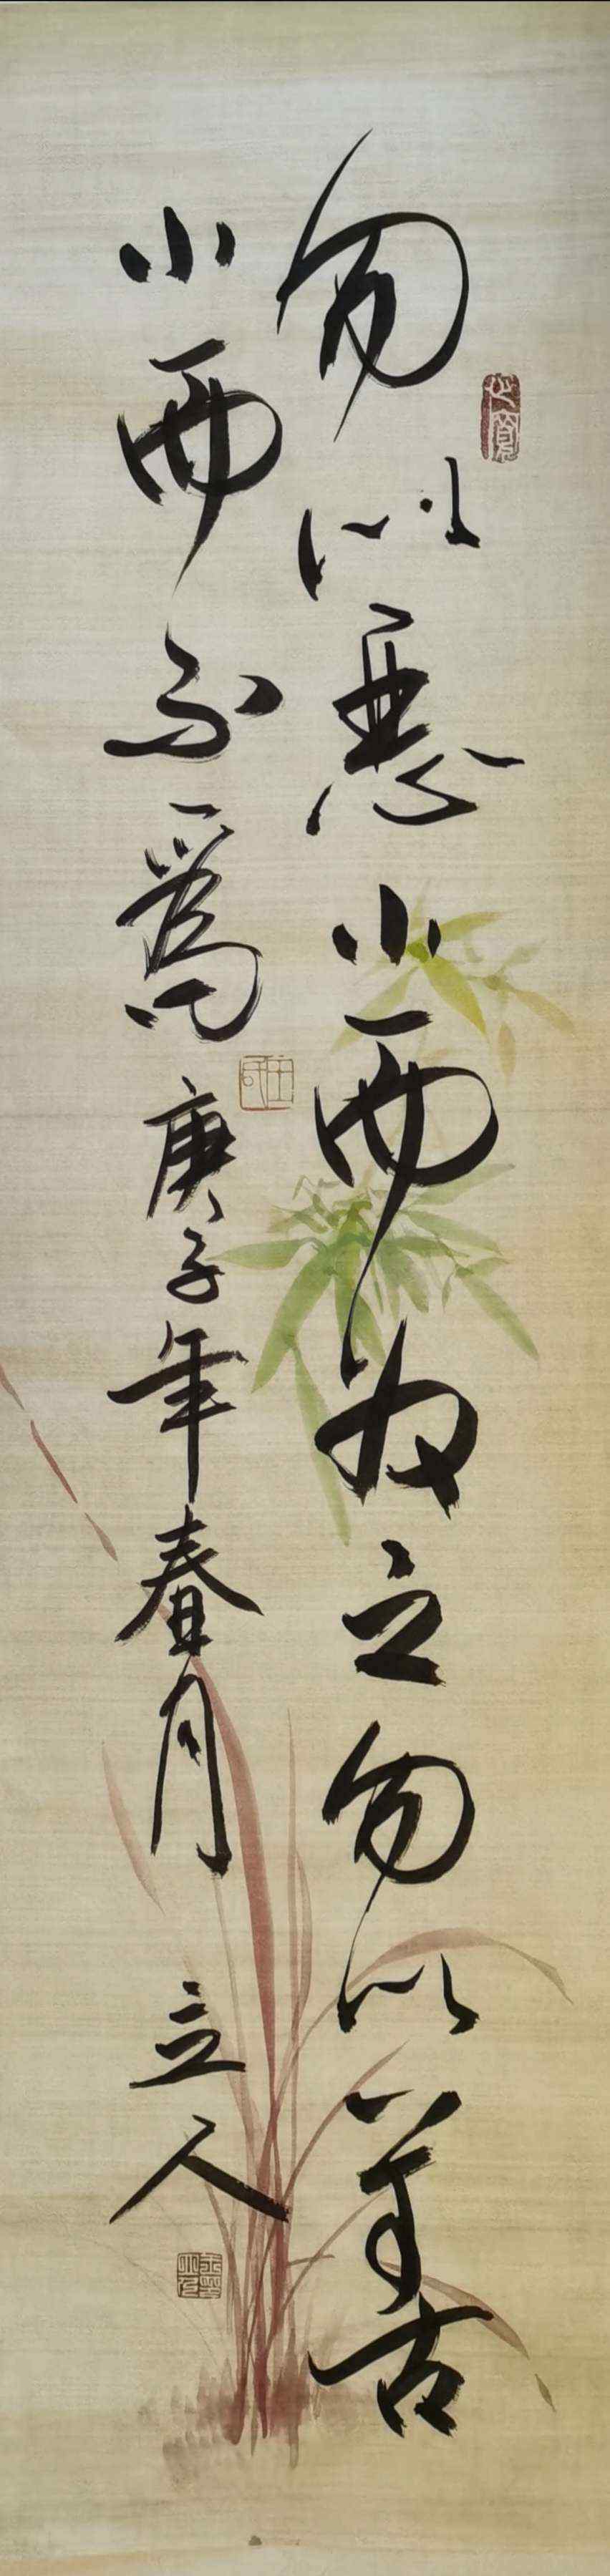 勿以惡小而为之勿以善
小而不為 庚子年春月 立人